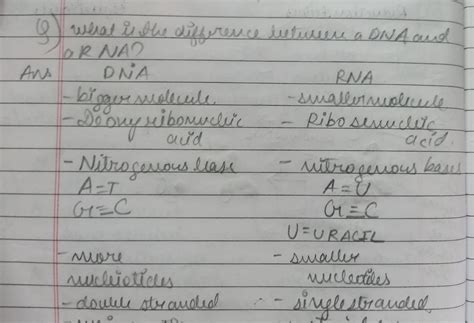 Q) what is the difference between a DNA and
a R NA?
Ans DNA RNA
- bigger molecule. - smaller molecule.
- Deoxyribonucleic - Ribosenucleic
acid acid.
- Nitrogenous base - nitrogenous bases
A=T A=U
G≡C G≡C
U=URACIL
- more - smaller
nucleotides nucleotides
- double stranded - single stranded.